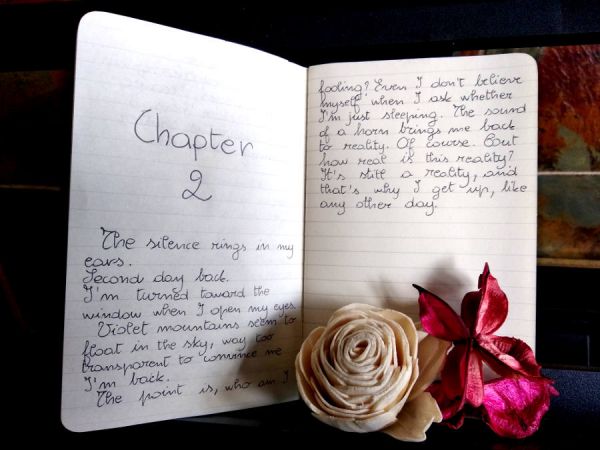 Chapter
2
The silence rings in my
ears.
Second day back.
I'm turned toward the
window when I open my eyes.
Violet mountains seem to
float in the sky, way too
transparent to convince me
I'm back.
The point is, who am I
fooling? Even I don't believe
myself when I ask whether
I'm just sleeping. The sound
of a horn brings me back
to reality. Of course. But
how real is this reality?
It's still a reality, and
that's why I get up, like
any other day.